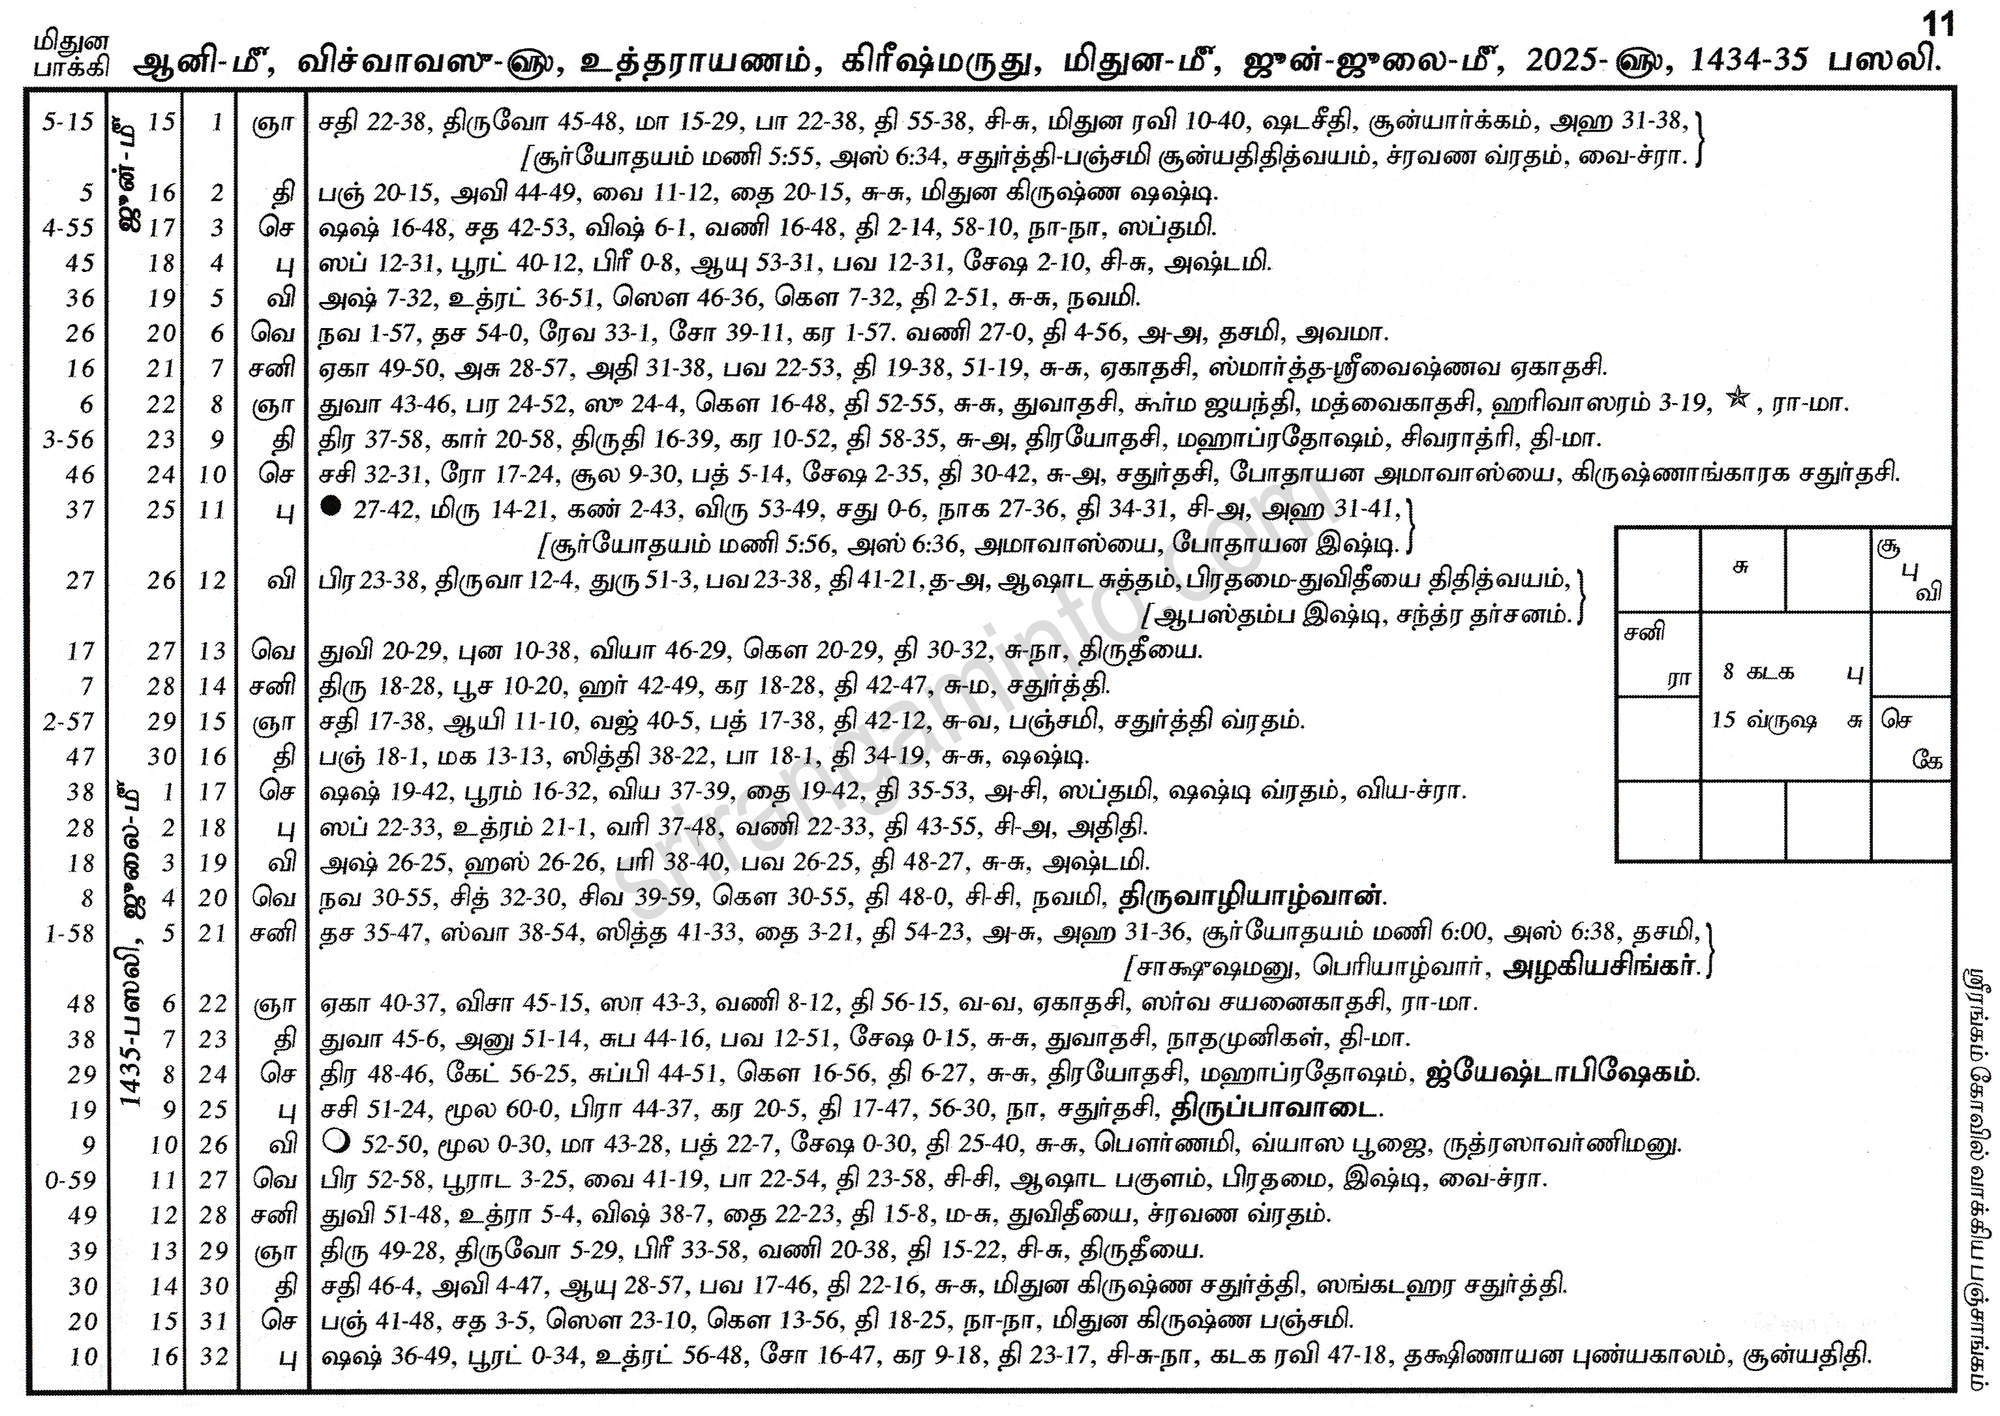 11
மிதுன
பாக்கி
ஆனி-மீ, விச்வாவஸு-௵, உத்தராயணம், கிரீஷ்மருது, மிதுன-மீ, ஜுன்-ஜுலை-மீ, 2025-௵, 1434-35 பஸலி.
ஜுன்-மீ
5-15 15 1 ஞா சதி 22-38, திருவோ 45-48, மா 15-29, பா 22-38, தி 55-38, சி-சு, மிதுன ரவி 10-40, ஷடசீதி, சூன்யார்க்கம், அஹ 31-38,
[சூர்யோதயம் மணி 5:55, அஸ் 6:34, சதுர்த்தி-பஞ்சமி சூன்யதிதித்வயம், ச்ரவண வ்ரதம், வை-ச்ரா.
5 16 2 தி பஞ் 20-15, அவி 44-49, வை 11-12, தை 20-15, சு-சு, மிதுன கிருஷ்ண ஷஷ்டி.
4-55 17 3 செ ஷஷ் 16-48, சத 42-53, விஷ் 6-1, வணி 16-48, தி 2-14, 58-10, நா-நா, ஸப்தமி.
45 18 4 பு ஸப் 12-31, பூரட் 40-12, பிரீ 0-8, ஆயு 53-31, பவ 12-31, சேஷ 2-10, சி-சு, அஷ்டமி.
36 19 5 வி அஷ் 7-32, உத்ரட் 36-51, ஸௌ 46-36, கௌ 7-32, தி 2-51, சு-சு, நவமி.
26 20 6 வெ நவ 1-57, தச 54-0, ரேவ 33-1, சோ 39-11, கர 1-57. வணி 27-0, தி 4-56, அ-அ, தசமி, அவமா.
16 21 7 சனி ஏகா 49-50, அசு 28-57, அதி 31-38, பவ 22-53, தி 19-38, 51-19, சு-சு, ஏகாதசி, ஸ்மார்த்த-ஸ்ரீவைஷ்ணவ ஏகாதசி.
6 22 8 ஞா துவா 43-46, பர 24-52, ஸு 24-4, கௌ 16-48, தி 52-55, சு-சு, துவாதசி, கூர்ம ஜயந்தி, மத்வைகாதசி, ஹரிவாஸரம் 3-19, ★, ரா-மா.
3-56 23 9 தி திர 37-58, கார் 20-58, திருதி 16-39, கர 10-52, தி 58-35, சு-அ, திரயோதசி, மஹாப்ரதோஷம், சிவராத்ரி, தி-மா.
46 24 10 செ சசி 32-31, ரோ 17-24, சூல 9-30, பத் 5-14, சேஷ 2-35, தி 30-42, சு-அ, சதுர்தசி, போதாயன அமாவாஸ்யை, கிருஷ்ணாங்காரக சதுர்தசி.
37 25 11 பு ● 27-42, மிரு 14-21, கண் 2-43, விரு 53-49, சது 0-6, நாக 27-36, தி 34-31, சி-அ, அஹ 31-41,
[சூர்யோதயம் மணி 5:56, அஸ் 6:36, அமாவாஸ்யை, போதாயன இஷ்டி.
27 26 12 வி பிர 23-38, திருவா 12-4, துரு 51-3, பவ 23-38, தி 41-21, த-அ, ஆஷாட சுத்தம், பிரதமை-துவிதீயை திதித்வயம்,
[ஆபஸ்தம்ப இஷ்டி, சந்த்ர தர்சனம்.
17 27 13 வெ துவி 20-29, புன 10-38, வியா 46-29, கௌ 20-29, தி 30-32, சு-நா, திருதீயை.
7 28 14 சனி திரு 18-28, பூச 10-20, ஹர் 42-49, கர 18-28, தி 42-47, சு-ம, சதுர்த்தி.
2-57 29 15 ஞா சதி 17-38, ஆயி 11-10, வஜ் 40-5, பத் 17-38, தி 42-12, சு-வ, பஞ்சமி, சதுர்த்தி வ்ரதம்.
47 30 16 தி பஞ் 18-1, மக 13-13, ஸித்தி 38-22, பா 18-1, தி 34-19, சு-சு, ஷஷ்டி.
1435-பஸலி, ஜுலை-மீ
38 1 17 செ ஷஷ் 19-42, பூரம் 16-32, விய 37-39, தை 19-42, தி 35-53, அ-சி, ஸப்தமி, ஷஷ்டி வ்ரதம், விய-ச்ரா.
28 2 18 பு ஸப் 22-33, உத்ரம் 21-1, வரி 37-48, வணி 22-33, தி 43-55, சி-அ, அதிதி.
18 3 19 வி அஷ் 26-25, ஹஸ் 26-26, பரி 38-40, பவ 26-25, தி 48-27, சு-சு, அஷ்டமி.
8 4 20 வெ நவ 30-55, சித் 32-30, சிவ 39-59, கௌ 30-55, தி 48-0, சி-சி, நவமி, திருவாழியாழ்வான்.
1-58 5 21 சனி தச 35-47, ஸ்வா 38-54, ஸித்த 41-33, தை 3-21, தி 54-23, அ-சு, அஹ 31-36, சூர்யோதயம் மணி 6:00, அஸ் 6:38, தசமி,
[சாக்ஷுஷமனு, பெரியாழ்வார், அழகியசிங்கர்.
48 6 22 ஞா ஏகா 40-37, விசா 45-15, ஸா 43-3, வணி 8-12, தி 56-15, வ-வ, ஏகாதசி, ஸர்வ சயனைகாதசி, ரா-மா.
38 7 23 தி துவா 45-6, அனு 51-14, சுப 44-16, பவ 12-51, சேஷ 0-15, சு-சு, துவாதசி, நாதமுனிகள், தி-மா.
29 8 24 செ திர 48-46, கேட் 56-25, சுப்பி 44-51, கௌ 16-56, தி 6-27, சு-சு, திரயோதசி, மஹாப்ரதோஷம், ஜ்யேஷ்டாபிஷேகம்.
19 9 25 பு சசி 51-24, மூல 60-0, பிரா 44-37, கர 20-5, தி 17-47, 56-30, நா, சதுர்தசி, திருப்பாவாடை.
9 10 26 வி ❍ 52-50, மூல 0-30, மா 43-28, பத் 22-7, சேஷ 0-30, தி 25-40, சு-சு, பௌர்ணமி, வ்யாஸ பூஜை, ருத்ரஸாவர்ணிமனு.
0-59 11 27 வெ பிர 52-58, பூராட 3-25, வை 41-19, பா 22-54, தி 23-58, சி-சி, ஆஷாட பகுளம், பிரதமை, இஷ்டி, வை-ச்ரா.
49 12 28 சனி துவி 51-48, உத்ரா 5-4, விஷ் 38-7, தை 22-23, தி 15-8, ம-சு, துவிதீயை, ச்ரவண வ்ரதம்.
39 13 29 ஞா திரு 49-28, திருவோ 5-29, பிரீ 33-58, வணி 20-38, தி 15-22, சி-சு, திருதீயை.
30 14 30 தி சதி 46-4, அவி 4-47, ஆயு 28-57, பவ 17-46, தி 22-16, சு-சு, மிதுன கிருஷ்ண சதுர்த்தி, ஸங்கடஹர சதுர்த்தி.
20 15 31 செ பஞ் 41-48, சத 3-5, ஸௌ 23-10, கௌ 13-56, தி 18-25, நா-நா, மிதுன கிருஷ்ண பஞ்சமி.
10 16 32 பு ஷஷ் 36-49, பூரட் 0-34, உத்ரட் 56-48, சோ 16-47, கர 9-18, தி 23-17, சி-சு-நா, கடக ரவி 47-18, தக்ஷிணாயன புண்யகாலம், சூன்யதிதி.
சு
சூ
பு
வி
சனி
ரா
8 கடக பு
15 வ்ருஷ சு
செ
கே
ஸ்ரீரங்கம் கோவில் வாக்கிய பஞ்சாங்கம்
srirangaminfo.com